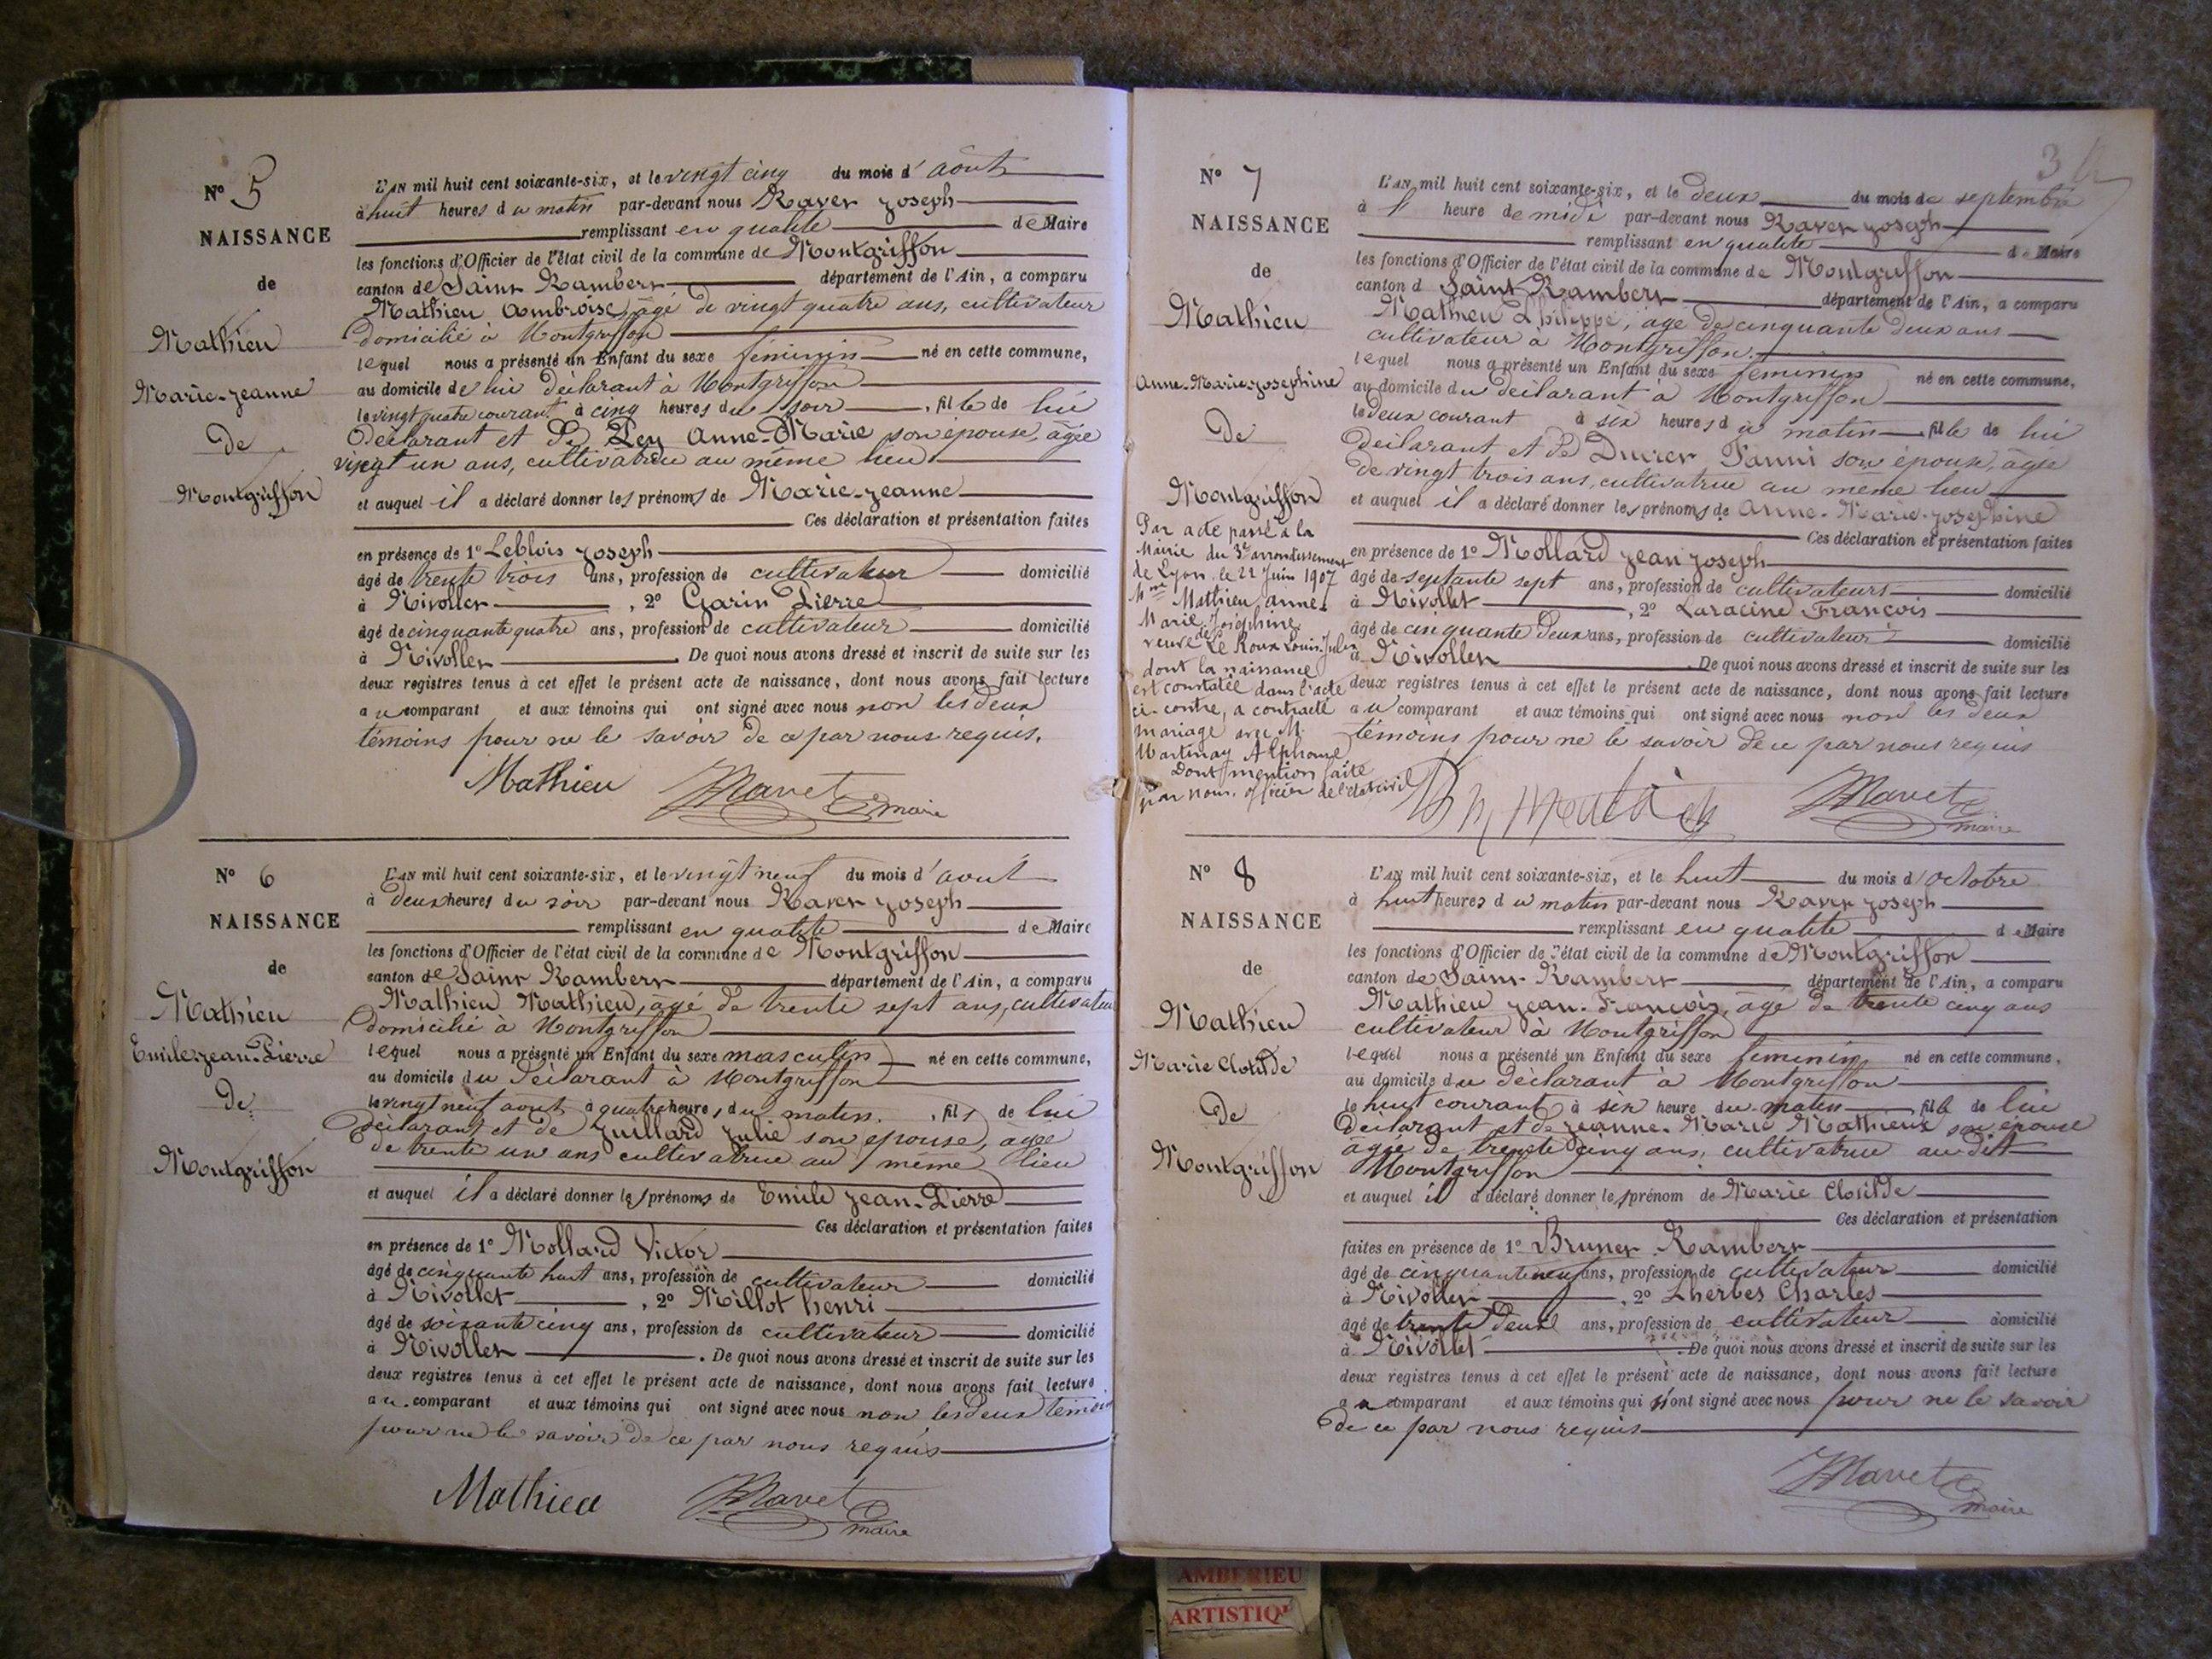 N° 5
NAISSANCE
de
Mathieu
Marie-Jeanne
De
Montgriffon
L'AN mil huit cent soixante-six, et le vingt cinq du mois d'août
à huit heures du matin par-devant nous Ravet Joseph
remplissant en qualité de Maire
les fonctions d'Officier de l'état civil de la commune de Montgriffon
canton de Saint Rambert département de l'Ain, a comparu
Mathieu Ambroise, âgé de vingt quatre ans, cultivateur
domicilié à Montgriffon
lequel nous a présenté un Enfant du sexe féminin né en cette commune,
au domicile de lui déclarant à Montgriffon
le vingt quatre courant à cinq heures du soir, fille de lui
déclarant et de Pey Anne-Marie son épouse, âgée
vingt un ans, cultivatrice au même lieu
et auquel il a déclaré donner les prénoms de Marie-Jeanne
Ces déclaration et présentation faites
en présence de 1° Leblois Joseph
âgé de trente trois ans, profession de cultivateur domicilié
à Nivollet, 2° Garin Pierre
âgé de cinquante quatre ans, profession de cultivateur domicilié
à Nivollet. De quoi nous avons dressé et inscrit de suite sur les
deux registres tenus à cet effet le présent acte de naissance, dont nous avons fait lecture
au comparant et aux témoins qui ont signé avec nous non les deux
témoins pour ne le savoir de ce par nous requis.
Mathieu Ravet maire
N° 6
NAISSANCE
de
Mathieu
Emile-Jean-Pierre
De
Montgriffon
L'AN mil huit cent soixante-six, et le vingt neuf du mois d'août
à deux heures du soir par-devant nous Ravet Joseph
remplissant en qualité de Maire
les fonctions d'Officier de l'état civil de la commune de Montgriffon
canton de Saint Rambert département de l'Ain, a comparu
Mathieu Mathieu, âgé de trente sept ans, cultivateur
domicilié à Montgriffon
lequel nous a présenté un Enfant du sexe masculin né en cette commune,
au domicile du déclarant à Montgriffon
le vingt neuf août à quatre heures du matin, fils de lui
déclarant et de Juillard Julie son épouse, âgée
de trente un ans cultivatrice au même lieu
et auquel il a déclaré donner les prénoms de Emile Jean-Pierre
Ces déclaration et présentation faites
en présence de 1° Mollard Victor
âgé de cinquante huit ans, profession de cultivateur domicilié
à Nivollet, 2° Millot henri
âgé de soixante cinq ans, profession de cultivateur domicilié
à Nivollet. De quoi nous avons dressé et inscrit de suite sur les
deux registres tenus à cet effet le présent acte de naissance, dont nous avons fait lecture
au comparant et aux témoins qui ont signé avec nous non les deux témoins
pour ne le savoir de ce par nous requis
Mathieu Ravet maire
3
N° 7
NAISSANCE
de
Mathieu
Anne-Marie-Josephine
De
Montgriffon
Par acte passé à la
Mairie du 3e arrondissement
de Lyon le 22 Juin 1907
Mme Mathieu Anne
Marie Joséphine
veuve de Le Roux Louis Jules
dont la naissance
est constatée dans l'acte
ci-contre, a contracté
mariage avec M.
Martinay Alphonse
Dont mention faite
par nous officier de l'état civil
L'AN mil huit cent soixante-six, et le deux du mois de septembre
à 1 heure de midi par-devant nous Ravet Joseph
remplissant en qualité de Maire
les fonctions d'Officier de l'état civil de la commune de Montgriffon
canton d Saint-Rambert département de l'Ain, a comparu
Mathieu Philippe, âgé de cinquante deux ans
cultivateur à Montgriffon.
lequel nous a présenté un Enfant du sexe féminin né en cette commune,
au domicile du déclarant à Montgriffon
le deux courant à six heures du matin, fille de lui
déclarant et de Ducret Fanni son épouse, âgée
de vingt trois ans, cultivatrice au même lieu
et auquel il a déclaré donner les prénoms de Anne-Marie-Josephine
Ces déclaration et présentation faites
en présence de 1° Mollard Jean Joseph
âgé de septante sept ans, profession de cultivateurs domicilié
à Nivollet, 2° Laracine François
âgé de cinquante deux ans, profession de cultivateur domicilié
à Nivollet. De quoi nous avons dressé et inscrit de suite sur les
deux registres tenus à cet effet le présent acte de naissance, dont nous avons fait lecture
au comparant et aux témoins qui ont signé avec nous non les deux
témoins pour ne le savoir de ce par nous requis
Ravet maire
N° 8
NAISSANCE
de
Mathieu
Marie Clotilde
De
Montgriffon
L'AN mil huit cent soixante-six, et le huit du mois d'octobre
à huit heures du matin par-devant nous Ravet Joseph
remplissant en qualité de Maire
les fonctions d'Officier de l'état civil de la commune de Montgriffon
canton de Saint-Rambert département de l'Ain, a comparu
Mathieu Jean-François, âgé de trente cinq ans
cultivateur à Montgriffon
lequel nous a présenté un Enfant du sexe féminin né en cette commune,
au domicile du déclarant à Montgriffon
le huit courant à six heure du matin, fille de lui
déclarant et de Jeanne-Marie Mathieux son épouse
âgée de trente cinq ans, cultivatrice au dit
Montgriffon
et auquel il a déclaré donner les prénom de Marie Clotilde
Ces déclaration et présentation
faites en présence de 1° Brunet Rambert
âgé de cinquante neuf ans, profession de cultivateur domicilié
à Nivollet, 2° Lherbes Charles
âgé de trente deux ans, profession de cultivateur domicilié
à Nivollet. De quoi nous avons dressé et inscrit de suite sur les
deux registres tenus à cet effet le présent acte de naissance, dont nous avons fait lecture
au comparant et aux témoins qui n'ont signé avec nous pour ne le savoir
de ce par nous requis
Ravet maire
AMBERIEU
ARTISTIQ